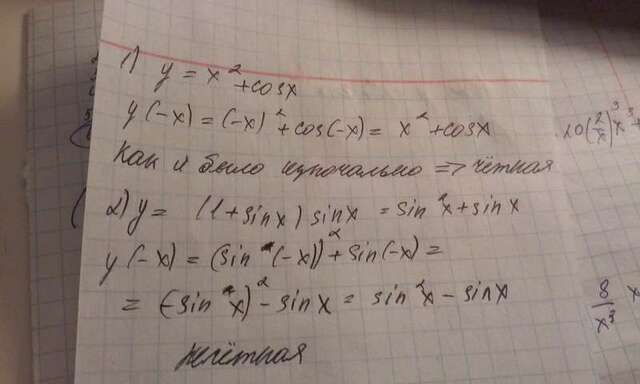 1) y = x² + cosx
y(-x) = (-x)² + cos(-x) = x² + cosx
Как и было изначально => чётная
2) y = (1 + sinx) sinx = sin²x + sinx
y(-x) = (sin(-x))² + sin(-x) =
= (-sin x)² - sinx = sin²x - sinx
20(2/x)³x³+
8/x³ x